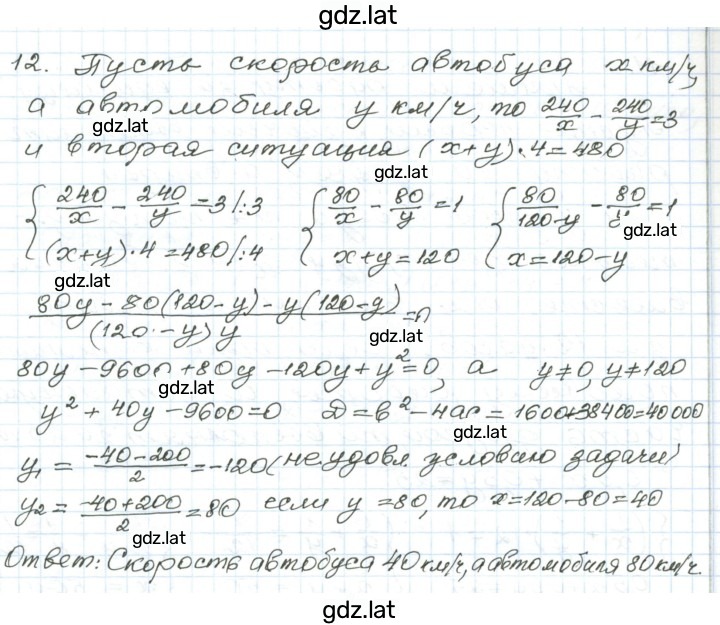 gdz.lat
12. Пусть скорость автобуса x км/ч,
а автомобиля y км/ч, то 240/x - 240/y = 3
gdz.lat
и вторая ситуация (x+y)·4=480
gdz.lat
{ 240/x - 240/y = 3 /:3 { 80/x - 80/y = 1 { 80/(120-y) - 80/y = 1
gdz.lat
(x+y)·4=480/:4 x+y=120 x=120-y
gdz.lat
(80y-80(120-y)-y(120-y))/((120-y)y)=0
gdz.lat
80y-9600+80y-120y+y²=0, а y≠0, y≠120
gdz.lat
y²+40y-9600=0 D=b²-4ac=1600+38400=40000
gdz.lat
y₁=(-40-200)/2=-120(не удовл. условию задачи)
y₂=(-40+200)/2=80 если y=80, то x=120-80=40
gdz.lat
Ответ: Скорость автобуса 40 км/ч, а автомобиля 80 км/ч.
gdz.lat